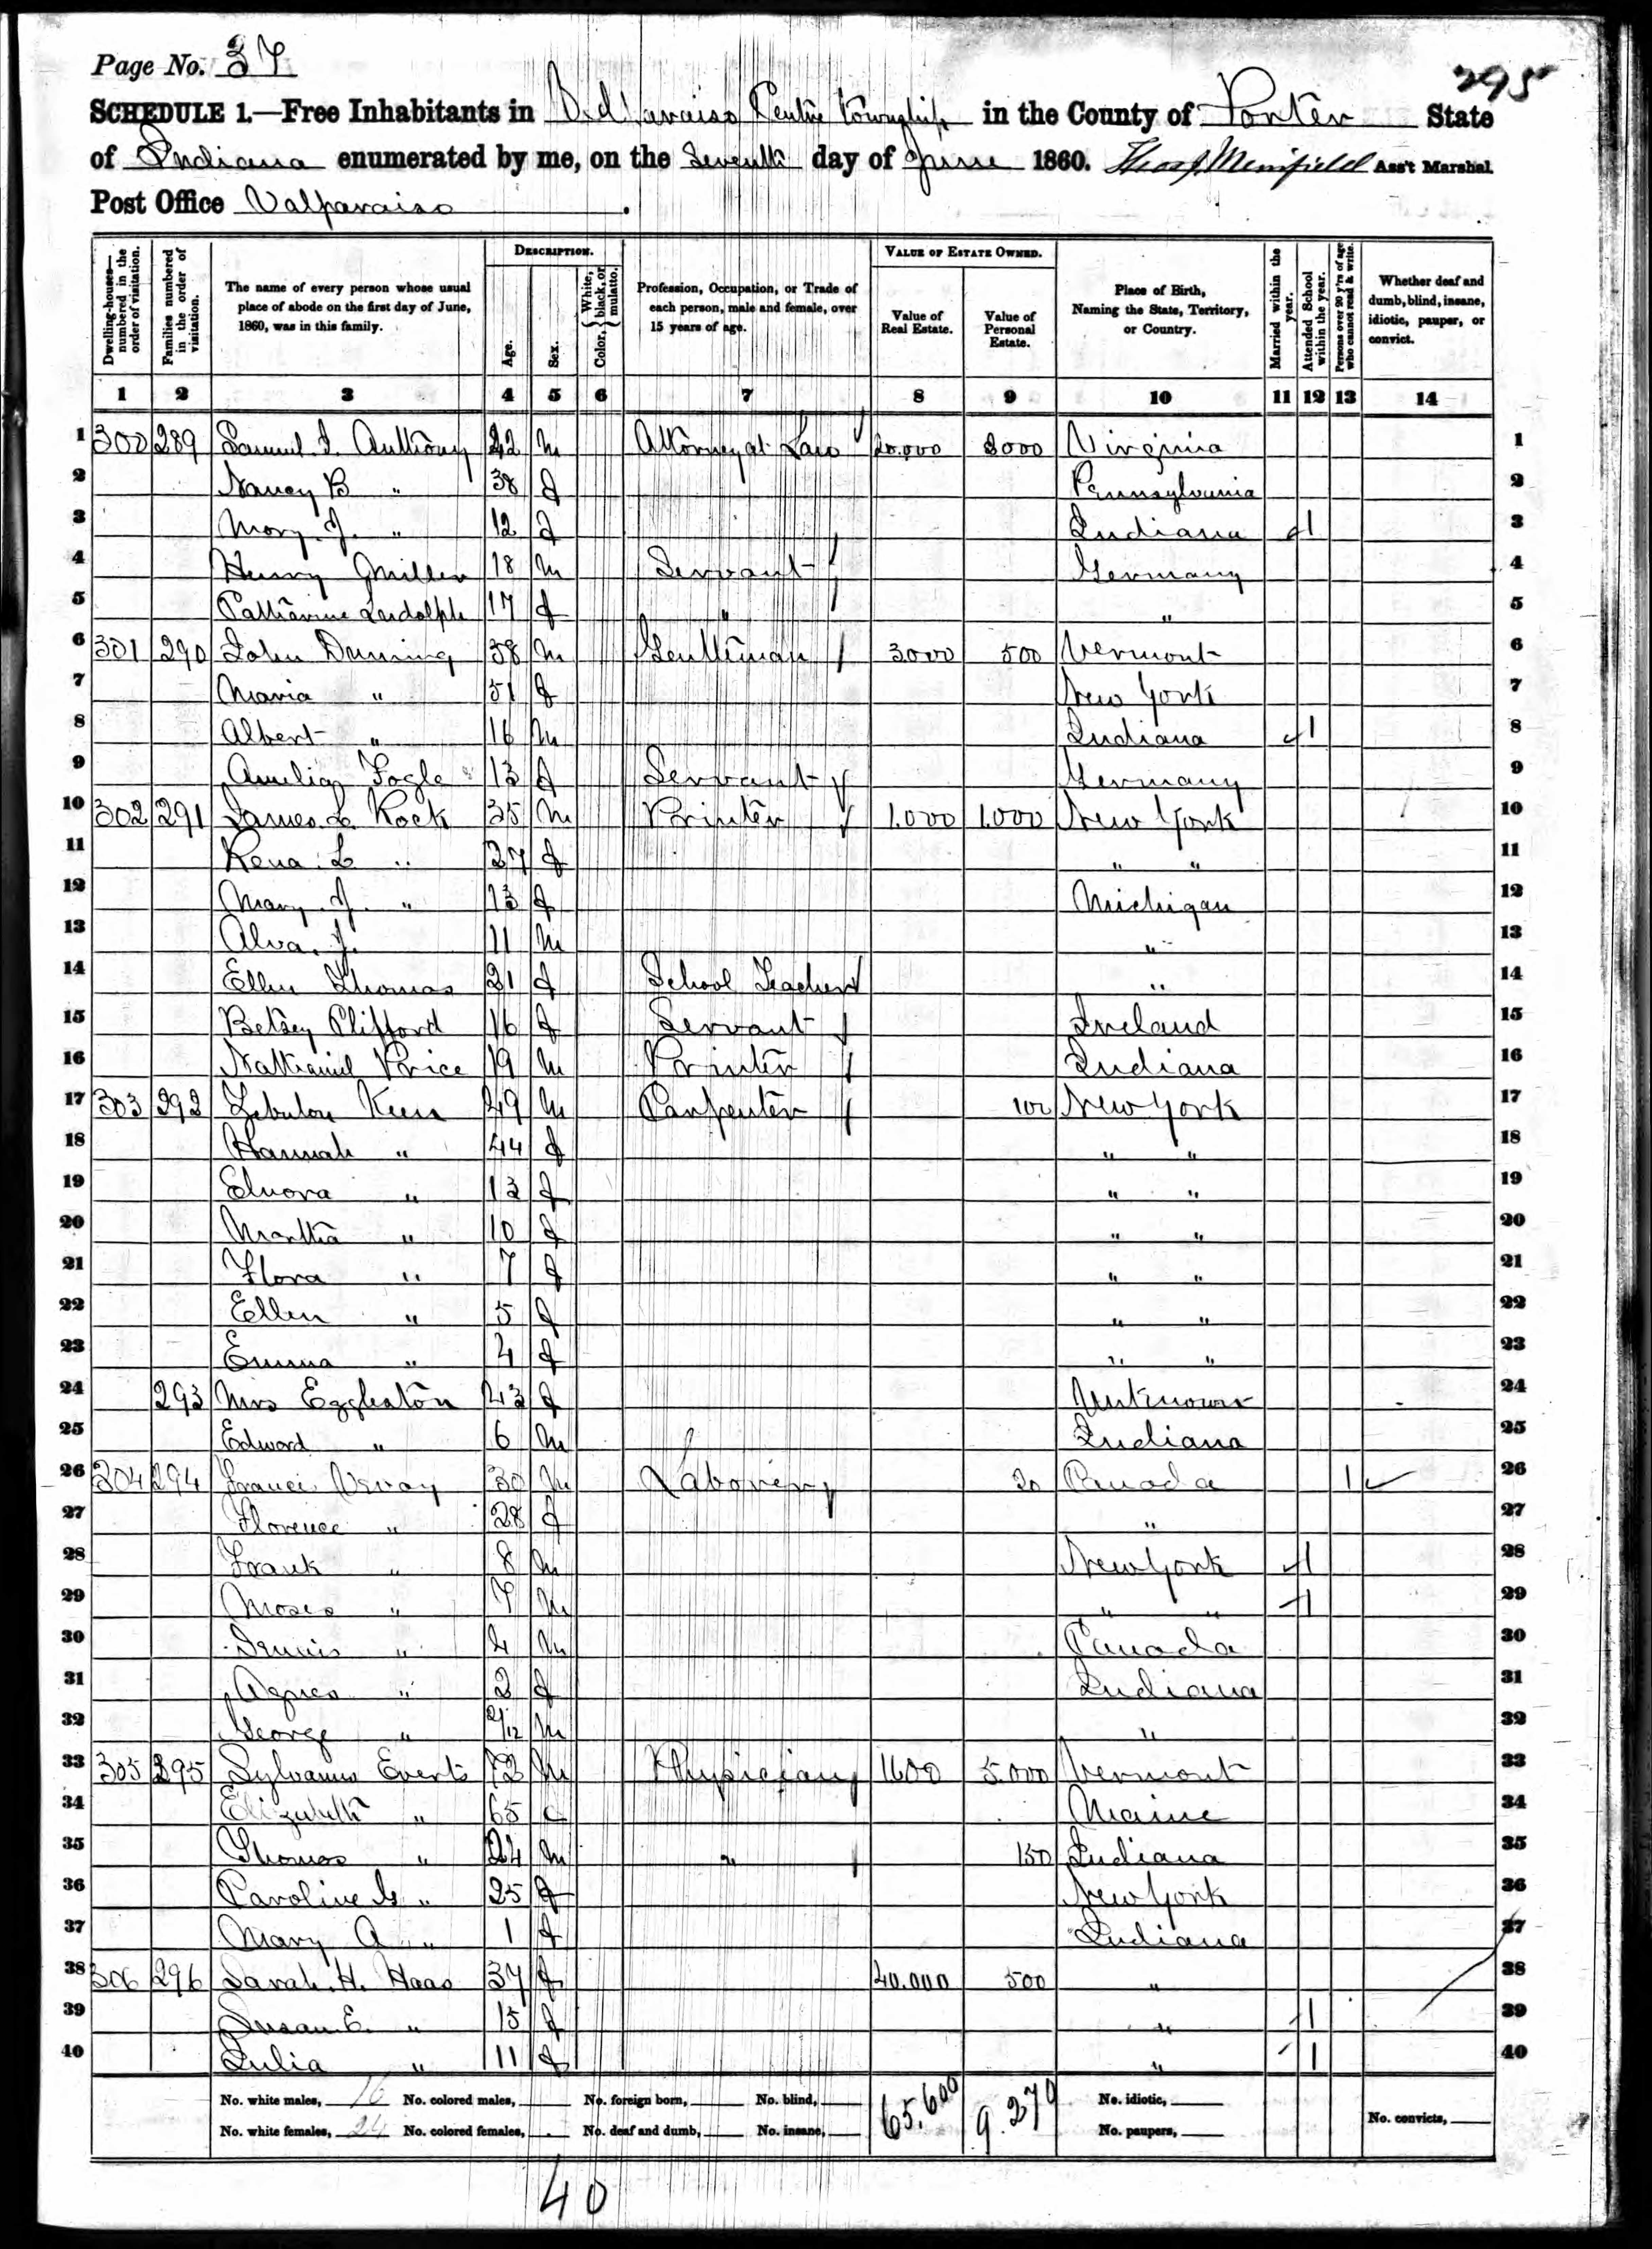 Page No. 37
295
SCHEDULE 1.—Free Inhabitants in Valparaiso Centre Township in the County of Porter State
of Indiana enumerated by me, on the Seventh day of June 1860. Ass't Marshal
Post Office Valparaiso.
Dwelling-houses—numbered in the order of visitation.
Families numbered in the order of visitation.
The name of every person whose usual place of abode on the first day of June, 1860, was in this family.
DESCRIPTION.
Age.
Sex.
Color, { White, black, or mulatto.
Profession, Occupation, or Trade of each person, male and female, over 15 years of age.
VALUE OF ESTATE OWNED.
Value of Real Estate.
Value of Personal Estate.
Place of Birth, Naming the State, Territory, or Country.
Married within the year.
Attended School within the year.
Persons over 20 y'rs of age who cannot read & write.
Whether deaf and dumb, blind, insane, idiotic, pauper, or convict.
1 2 3 4 5 6 7 8 9 10 11 12 13 14
1 300 289 Samuel I. Anthony 42 m Attorney at Law 20.000 3000 Virginia 1
2 Nancy B " 38 f Pennsylvania 2
3 Mary J. " 12 f Indiana 1 3
4 Henry Miller 18 m Servant Germany 4
5 Catharine Ludolph 17 f " " 5
6 301 290 John Dunning 58 m Gentleman 3000 500 Vermont 6
7 Maria " 51 f New York 7
8 Albert " 16 m Indiana 1 8
9 Amelia Fogle 13 f Servant Germany 9
10 302 291 James L. Rock 35 m Printer 1.000 1.000 New York 10
11 Rena L " 27 f " " 11
12 Mary J. " 13 f Michigan 12
13 Alva J. 11 m " 13
14 Ellen Thomas 21 f School Teacher " 14
15 Betsey Clifford 16 f Servant Ireland 15
16 Nathaniel Price 19 m Printer Indiana 16
17 303 292 Zebulon Keen 49 m Carpenter 100 New York 17
18 Hannah " 44 f " " 18
19 Elnora " 13 f " " 19
20 Martha " 10 f " " 20
21 Flora " 7 f " " 21
22 Ellen " 5 f " " 22
23 Emma " 4 f " " 23
24 293 Mrs Eggleston 43 f Unknown 24
25 Edward " 6 m Indiana 25
26 304 294 30 m Laborer 20 Canada 1 26
27 Florence " 28 f " 27
28 Frank " 8 m New York 1 28
29 Moses " 7 m " " 1 29
30 Dennis " 4 m Canada 30
31 Agnes " 2 f Indiana 31
32 George " 2/12 m " 32
33 305 295 Sylvanus Everts 72 m Physician 1600 5.000 Vermont 33
34 Elizabeth " 65 Maine 34
35 Thomas " 24 m " 150 Indiana 35
36 Caroline G. " 25 f New York 36
37 Mary A " 1 f Indiana 37
38 306 296 Sarah H. Haas 37 f 40.000 500 " 38
39 Susan E. " 15 f " 1 39
40 Julia " 11 f " 1 40
No. white males, 16 No. colored males, No. foreign born, No. blind, 65.600 9.270 No. idiotic,
No. white females, 24 No. colored females, No. deaf and dumb, No. insane, No. paupers, No. convicts,
40